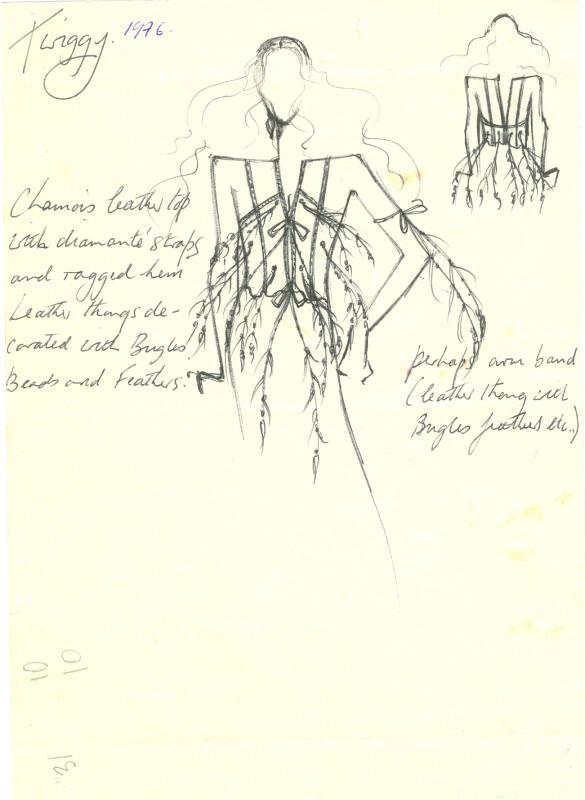 Twiggy. 1976.
Chamois leather top
with diamanté straps
and ragged hem
Leather thongs de-
corated with Bugles
Beads and Feathers.
perhaps arm band
(leather thong with
Bugles feathers etc..)
10
10
3/